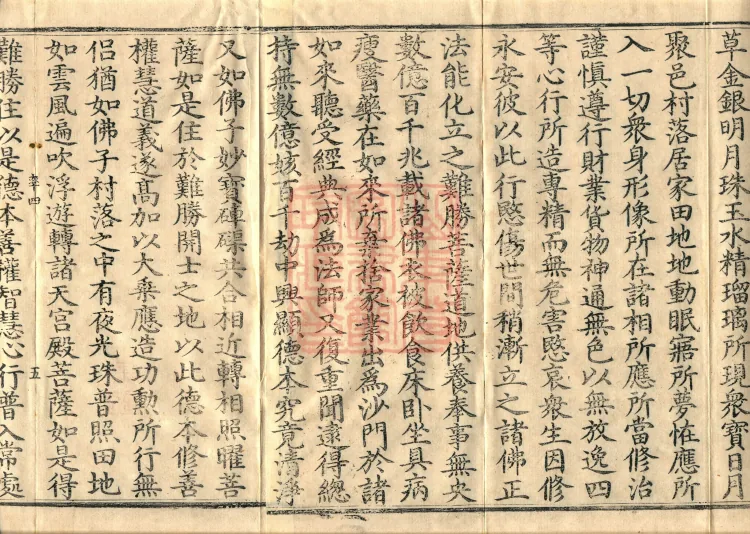 草金銀明月珠玉水精瑠璃所現衆寶日月
聚邑村落居家田地地動眠寤所夢恠應所
入一切衆身形像所在諸相所應所當修治
謹慎遵行財業貨物神通無色以無放逸四
等心行所造專精而無危害愍哀衆生因修
永安彼以此行愍傷世間稍漸立之諸佛正
法能化立之難勝菩薩道地供養奉事無央
數億百千兆載諸佛衣被飲食床卧坐具病
瘦醫藥在如來所棄捨家業出爲沙門於諸
如來聽受經典成爲法師又復重聞逮得總
持無數億姟百千劫中興顯德本究竟清淨
又如佛子妙寶硨磲共合相近轉相照曜菩
薩如是住於難勝開士之地以此德本修善
權慧道義遂髙加以大藥應造功勲所行無
侣猶如佛子村落之中有夜光珠普照田地
如雲風遍吹浮遊轉諸天宮殿菩薩如是得
難勝住以是德本善權智慧心行普入常處
五